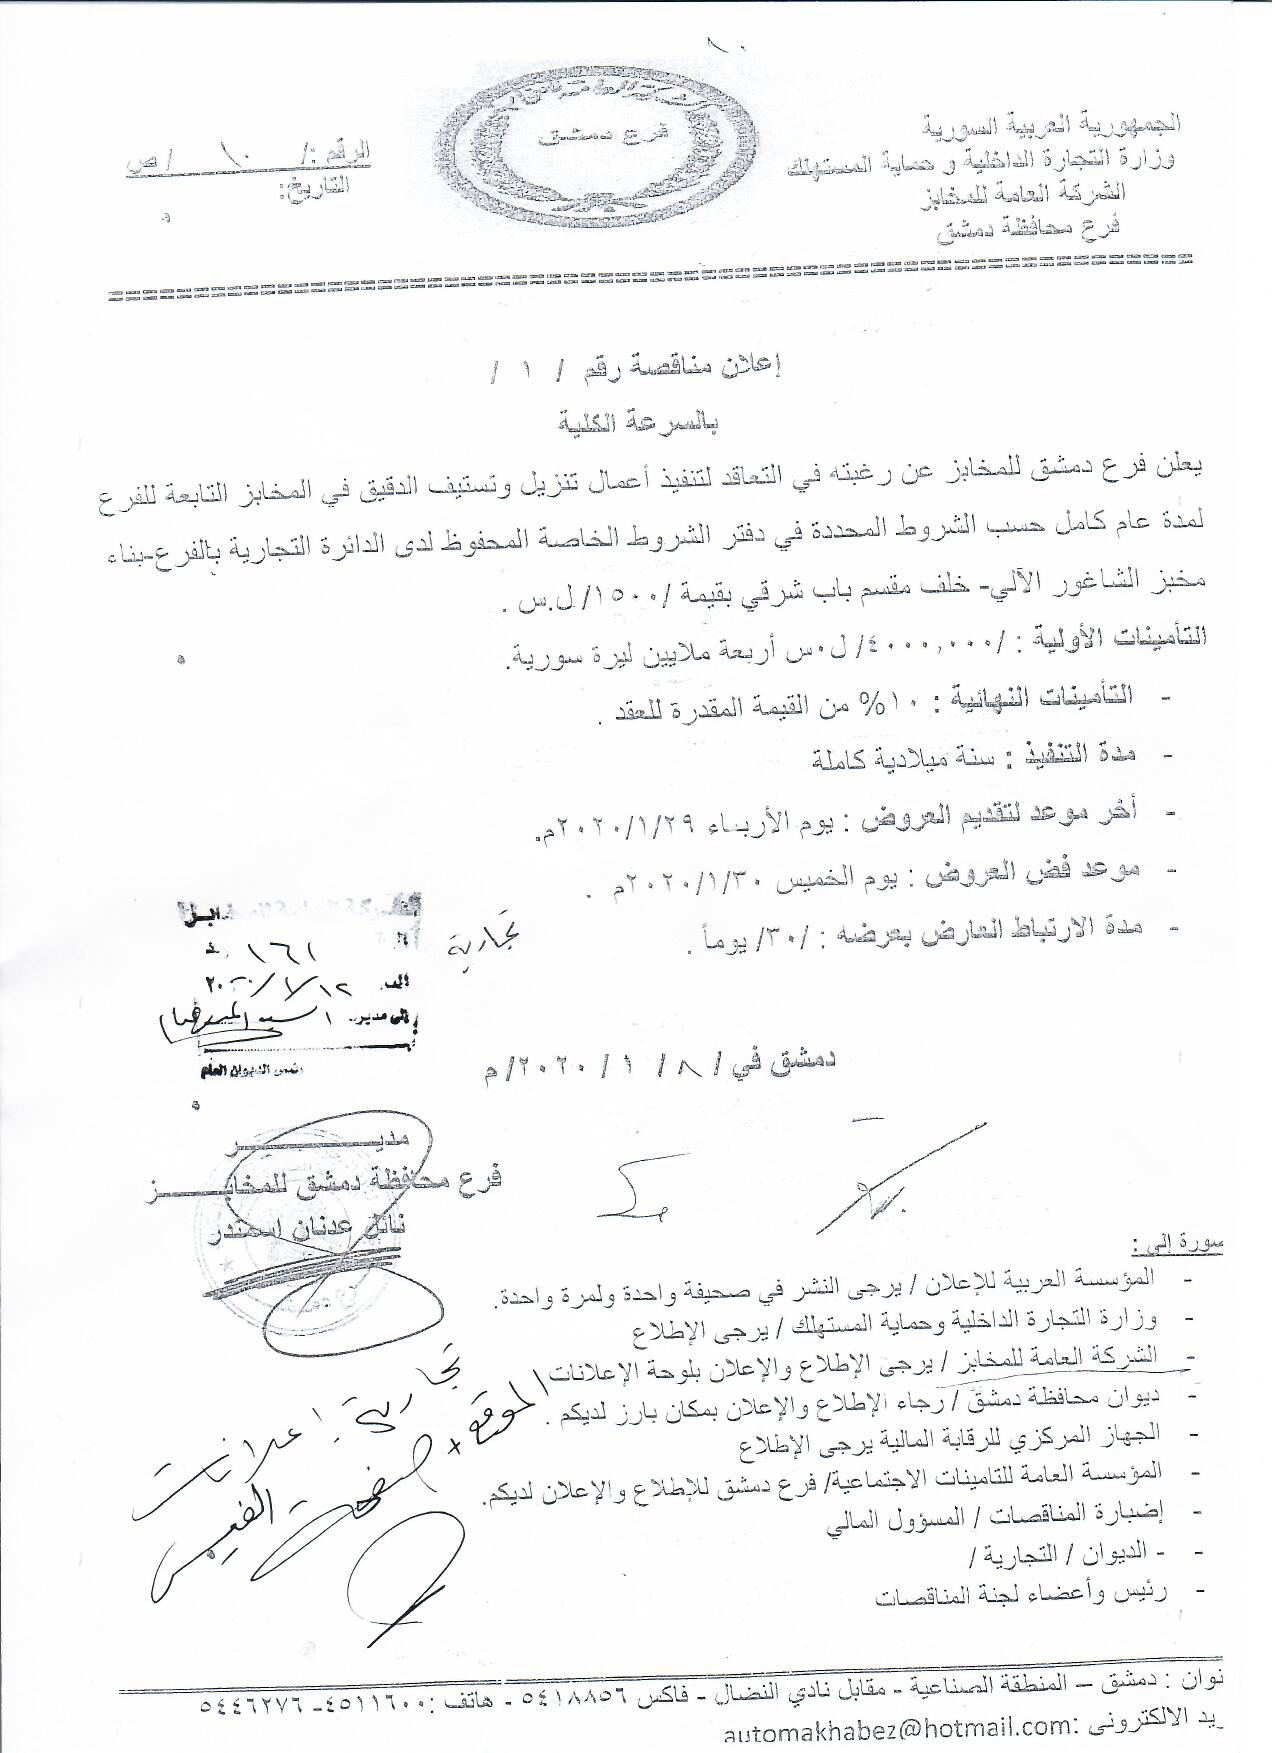 الجمهورية العربية السورية
وزارة التجارة الداخلية و حماية المستهلك
الشركة العامة للمخابز
فرع محافظة دمشق
فرع دمشق
الرقم : / ١٠ /ص
التاريخ:
إعلان مناقصة رقم / ١ /
بالسرعة الكلية
يعلن فرع دمشق للمخابز عن رغبته في التعاقد لتنفيذ أعمال تنزيل وتستيف الدقيق في المخابز التابعة للفرع
لمدة عام كامل حسب الشروط المحددة في دفتر الشروط الخاصة المحفوظ لدى الدائرة التجارية بالفرع-بناء
مخبز الشاغور الآلي- خلف مقسم باب شرقي بقيمة /١٥٠٠/ ل.س .
التأمينات الأولية : /٤٠٠٠,٠٠٠/ ل.س أربعة ملايين ليرة سورية.
- التأمينات النهائية : ١٠% من القيمة المقدرة للعقد .
- مدة التنفيذ : سنة ميلادية كاملة
- أخر موعد لتقديم العروض : يوم الأربعاء ٢٠٢٠/١/٢٩م.
- موعد فض العروض : يوم الخميس ٢٠٢٠/١/٣٠م .
- مدة الارتباط العارض بعرضه : /٣٠/ يوماً .
تجارية
١٦١
٢٠٢٠/١/١٢
إلى مدير
رئيس الديوان العام
دمشق في / ٨ / ١ / ٢٠٢٠/ م
مديــــــــــر
فرع محافظة دمشق للمخابــــز
نائل عدنان اسمندر
صورة إلى :
- المؤسسة العربية للإعلان / يرجى النشر في صحيفة واحدة ولمرة واحدة.
- وزارة التجارة الداخلية وحماية المستهلك / يرجى الإطلاع
- الشركة العامة للمخابز / يرجى الإطلاع والإعلان بلوحة الإعلانات
- ديوان محافظة دمشق / رجاء الإطلاع والإعلان بمكان بارز لديكم .
- الجهاز المركزي للرقابة المالية يرجى الإطلاع
- المؤسسة العامة للتامينات الاجتماعية/ فرع دمشق للإطلاع والإعلان لديكم.
- إضبارة المناقصات / المسؤول المالي
- - الديوان / التجارية /
- رئيس وأعضاء لجنة المناقصات
تجارية : اعلانات
الموقع + صفحة الفيس
نوان : دمشق – المنطقة الصناعية - مقابل نادي النضال - فاكس ٥٤١٨٨٥٦ - هاتف :٤٥١١٦٠٠- ٥٤٤٦٢٧٦
ريد الالكتروني :automakhabez@hotmail.com